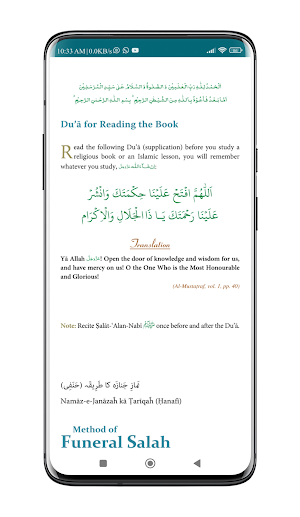 10:33 AM | 0.0KB/s
اَلْحَمْدُ لِلّٰهِ رَبِّ الْعٰلَمِيْنَ وَ الصَّلٰوةُ وَ السَّلَامُ عَلٰى سَيِّدِ الْمُرْسَلِيْنَ
اَمَّا بَعْدُ فَاَعُوْذُ بِاللّٰهِ مِنَ الشَّيْطٰنِ الرَّجِيْمِ ؕ بِسْمِ اللّٰهِ الرَّحْمٰنِ الرَّحِيْمِ ؕ
Du’ā for Reading the Book
Read the following Du’ā (supplication) before you study a
religious book or an Islamic lesson, you will remember
whatever you study,
اَللّٰهُمَّ افْتَحْ عَلَيْنَا حِكْمَتَكَ وَانْشُرْ
عَلَيْنَا رَحْمَتَكَ يَـا ذَا الْجَلَالِ وَالْاِكْرَام
Translation
Yā Allah عَزَّوَجَلَّ! Open the door of knowledge and wisdom for us,
and have mercy on us! O the One Who is the Most Honourable
and Glorious!
(Al-Mustatraf, vol. 1, pp. 40)
Note: Recite Ṣalāt-‘Alan-Nabī ﷺ once before and after the Du’ā.
نمازِ جنازہ کا طریقہ (حنفی)
Namāz-e-Janāzaĥ kā Ṭarīqaĥ (Ḥanafī)
Method of
Funeral Salah